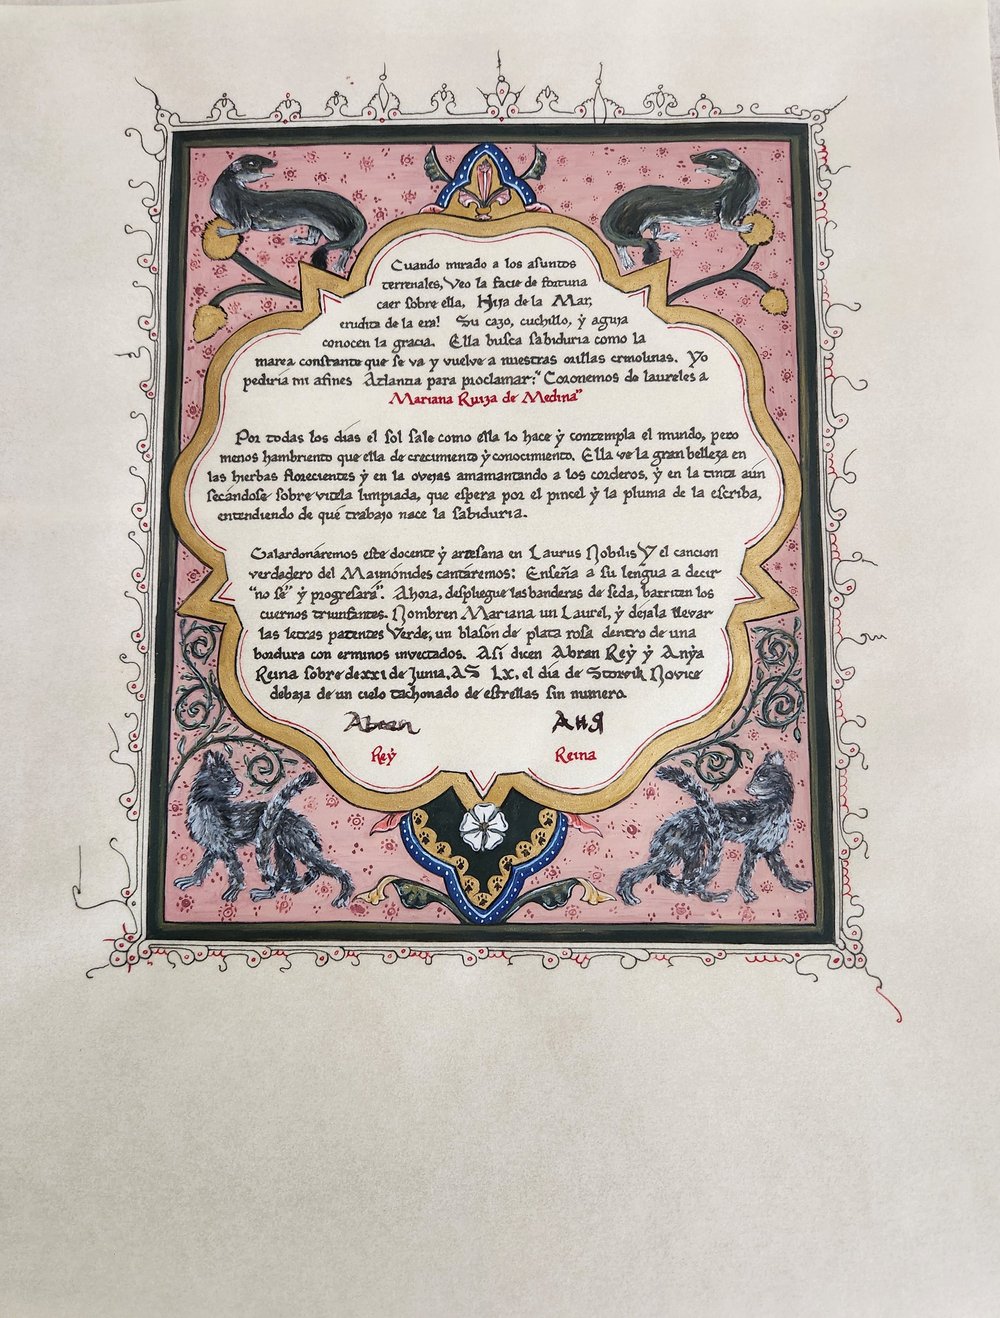 Cuando mirado a los asuntos
terrenales, Veo la facie de fortuna
caer sobre ella, Hija de la Mar,
erudita de la era! Su cazo, cuchillo, ẏ aguja
conocen la gracia. Ella busca sabiduria como la
marea constante que se va y vuelve a nuestras orillas crinolinas. Yo
pediría mi afines Atlantia para proclamar: "Coronemos de laureles a
Mariana Ruiza de Medina"
Por todas los dias el sol sale como ella lo hace ẏ contempla el mundo, pero
menos hambriento que ella de crecimiento ẏ conocimiento. Ella ve la gran belleza en
las hierbas florecientes ẏ en la ovejas amamantando a los corderos, ẏ en la tinta aún
secándose sobre vitela limpiada, que espera por el pincel ẏ la pluma de la escriba,
entendiendo de qué trabajo nace la sabiduria.
Galardonáremos este docente ẏ artesana en Laurus Nobilis Y el cancion
verdadero del Maimónides cantáremos: Enseña a su lengua a decir
"no sé" ẏ progresará". Ahora, despliegue las banderas de seda, barriten los
cuernos triunfantes. Nombren Mariana un Laurel, ẏ déjala llevar
las letras patentes Verde, un blasón de plata rosa dentro de una
bordura con erminos invectados. Así dicen Abran Reẏ ẏ Anẏa
Reina sobre de xxi de Junia, AS LX, el día de Storvik Novice
debaja de un cielo tachonado de estrellas sin numero.
Abran
Reẏ
Reina